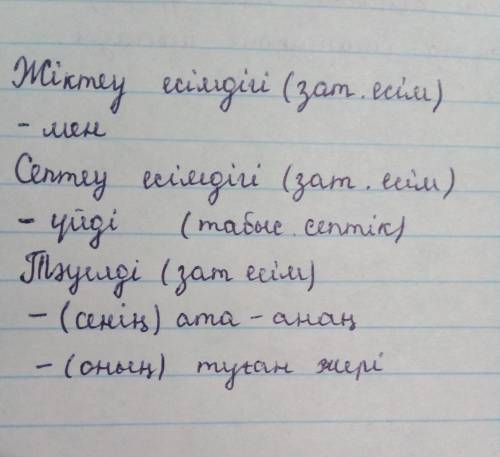 Жіктеу есімдігі (зат. есім)
- мен
Септеу есімдігі (зат. есім)
- үйді (табыс. септік)
Тәуелді (зат есім)
- (сенің) ата - анаң
- (оның) туған жері